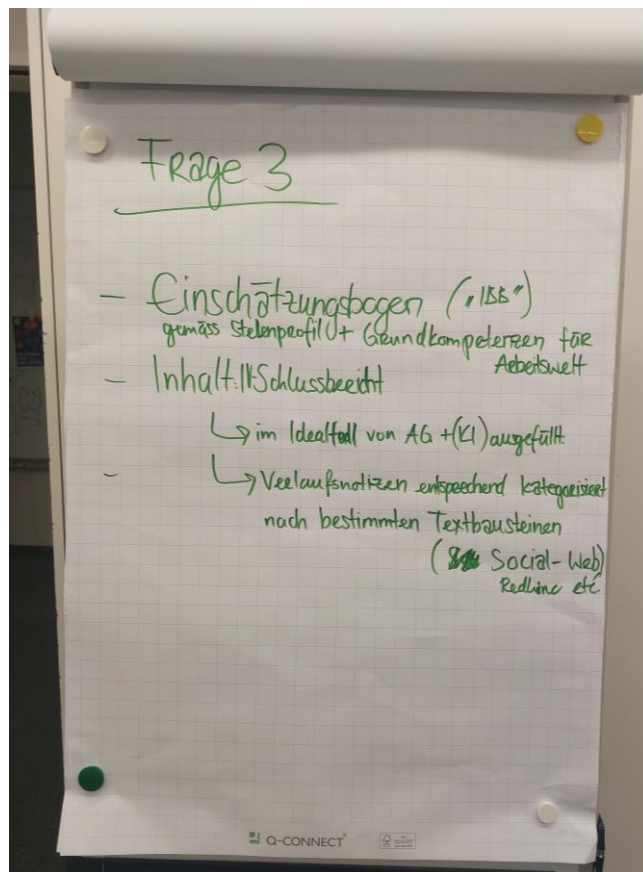 Frage 3
– Einschätzungsbogen („IBB")
gemäss Stelenprofil + Grundkompetenzen für
Arbeitswelt
– Inhalt: IV-Schlussbericht
↳ im Idealfall von AG + (KI) ausgefüllt
– ↳ Verlaufsnotizen entsprechend kategorisiert
nach bestimmten Textbausteinen
( Social-Web)
Redline etc.
Q-CONNECT